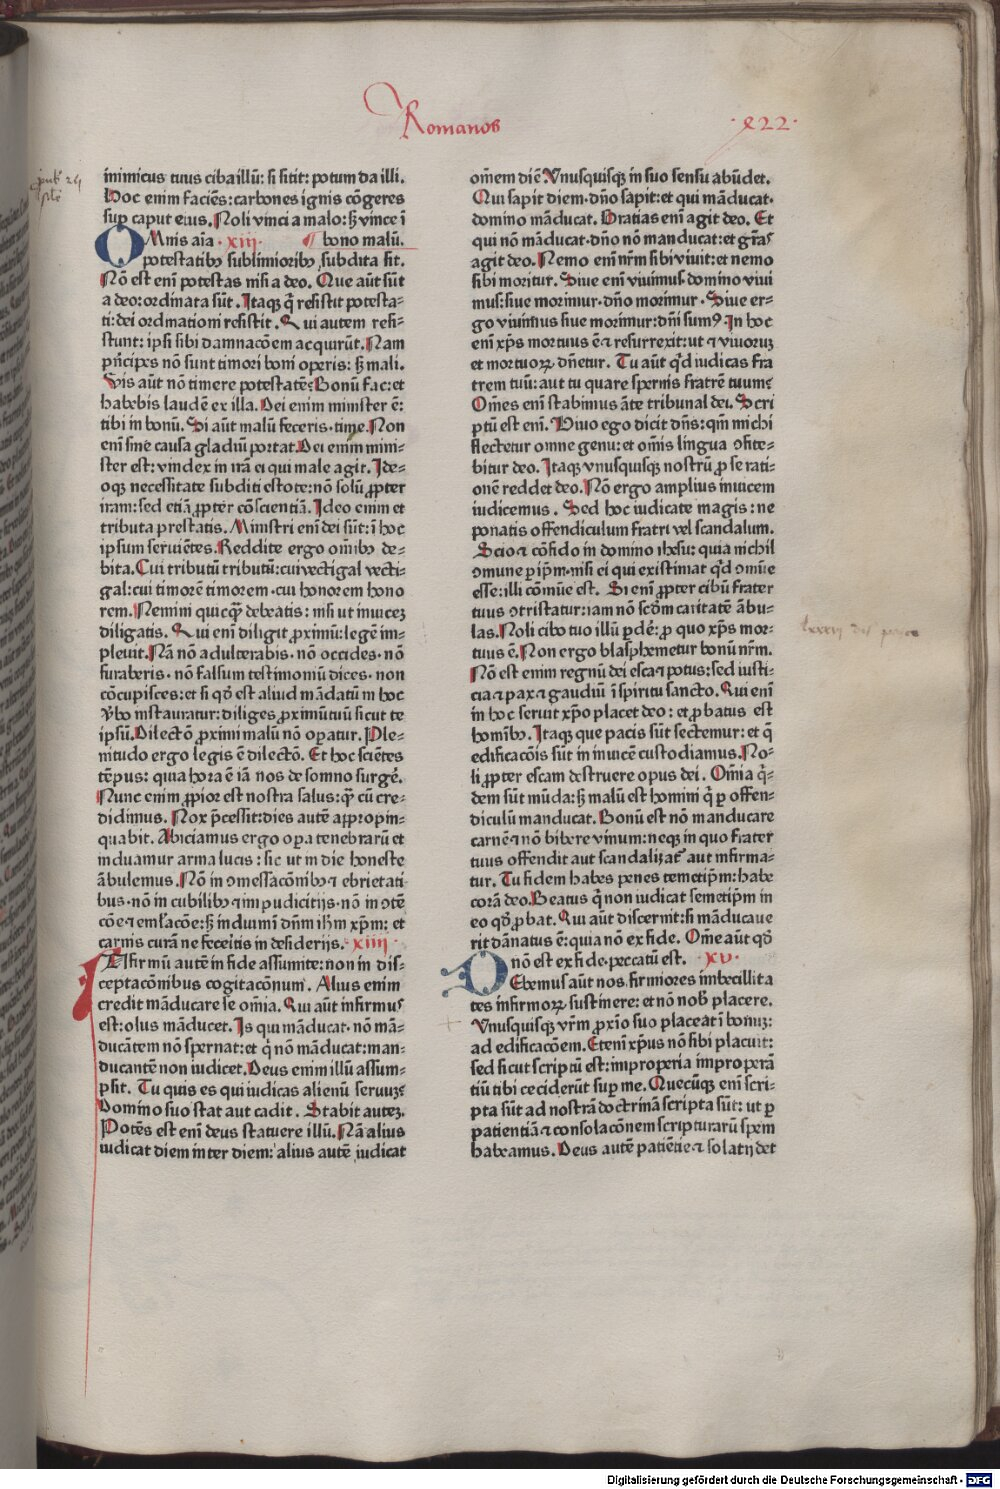 Romanos
·xxii·
inimicus tuus ciba illū: si sitit: potum da illi.
Hoc enim faciēs: carbones ignis cōgeres
sup caput eius. Noli vinci a malo: sꝫ vince ī
OMnis aīa ·xiij· ¶ bono malū.
potestatibꝰ sublimioribꝰ subdita sit.
Nō est enī potestas nisi a deo. Que aūt sūt
a deo: ordinata sūt. Itaqꝫ q̄ resistit potesta-
ti: dei ordinationi resistit. Qui autem resi-
stunt: ipsi sibi damnacōem acquirūt. Nam
p̄ncipes nō sunt timori boni operis: sꝫ mali.
Vis aūt nō timere potestatē: Bonū fac: et
habebis laudē ex illa. Dei enim minister ē:
tibi in bonū. Si aūt malū feceris· time. Non
enī sine causa gladiū portat. Dei enim mini-
ster est: vindex in irā ei qui male agit. Ide-
oqꝫ necessitate subditi estote: nō solū ꝓpter
iram: sed etiā ꝓpter cōscientiā. Ideo enim et
tributa prestatis. Ministri enī dei sūt: ī hoc
ipsum seruiētes. Reddite ergo oīnibꝰ de-
bita. Cui tributū tributū: cui vectigal vecti-
gal: cui timorē timorem· cui honorem hono
rem. Nemini quicqȝ debeatis: nisi ut inuiceꝫ
diligatis. Qui enī diligit ꝓximū: legē im-
pleuit. Nā nō adulterabis· nō occides· nō
furaberis· nō falsum testimoniū dices· non
cōcupisces: et si qd̄ est aliud mādatū in hoc
ꝟbo instauratur: diliges ꝓximū tuū sicut te
ipsū. Dilectō ꝓximi malū nō opatur. Ple-
nitudo ergo legis ē dilectō. Et hoc sciētes
tēpus: quia hora ē iā nos de somno surgē.
Nunc enim ꝓpior est nostra salus: qȝ cū cre-
didimus. Nox p̄cessit: dies autē appropin-
quabit. Abiciamus ergo opa tenebrarū et
induamur arma lucis: sic ut in die honeste
ābulemus. Nō in ꝯmessacōnibꝰ ⁊ ebrietati
bus· nō in cubilibꝰ ⁊ impudicitijs· nō in ꝯtē
cōe ⁊ emlacōe: sꝫ induimī dn̄m ih̄m xp̄m: et
carnis curā ne feceritis in desiderijs. ·xiiij·
INfirmū autē in fide assumite: non in dis-
ceptacōnibus cogitacōnum. Alius enim
credit māducare se oīnia. Qui aūt infirmus
est: olus māducet. Is qui māducat· nō mā-
ducātem nō spernat: et q̄ nō māducat: man-
ducantē non iudicet. Deus enim illū assum-
psit. Tu quis es qui iudicas alienū seruuꝫ
Domino suo stat aut cadit. Stabit auteꝫ.
Potēs est enī deus statuere illū. Nā alius
iudicat diem inter diem: alius autē iudicat
oīnem diē. Vnusquisqꝫ in suo sensu abūdet.
Qui sapit diem· dn̄o sapit: et qui māducat·
domino māducat. Gratias enī agit deo. Et
qui nō māducat· dn̄o nō manducat: et gr̄as
agit deo. Nemo enī nr̄m sibi viuit: et nemo
sibi moritur. Siue enī viuimus· domino viui
mus: siue morimur· dn̄o morimur. Siue er-
go viuimus siue morimur: dn̄i sumꝰ. In hoc
enī xp̄s mortuus ē ⁊ resurrexit: ut ⁊ viuoruꝫ
et mortuoꝝ dn̄etur. Tu aūt qd̄ iudicas fra
trem tuū: aut tu quare spernis fratrē tuum:
Oīnes enī stabimus āte tribunal dei. Scri
ptū est enī. Viuo ego dicit dn̄s: qm̄ michi
flectetur omne genu: et oīnis lingua ꝯfite-
bitur deo. Itaqꝫ vnusquisqꝫ nostrū ꝓ se rati-
onē reddet deo. Nō ergo amplius inuicem
iudicemus. Sed hoc iudicate magis: ne
ponatis offendiculum fratri vel scandalum.
Scio ⁊ cōfido in domino ihesu: quia nichil
ꝯmune ꝑ ip̄m· nisi ei qui existimat qd̄ ꝯmūe
esse: illi cōmūe est. Si enī ꝓpter cibū frater
tuus ꝯtristatur: iam nō scd̄m caritatē ābu-
las. Noli cibo tuo illū ꝑdē: ꝓ quo xp̄s mor-
tuus ē. Non ergo blasphemetur bonū nr̄m.
Nō est enim regnū dei esca ⁊ potus: sed iusti-
cia ⁊ pax ⁊ gaudiū ī spiritu sancto. Qui enī
in hoc seruit xp̄o placet deo: et ꝓbatus est
homībꝰ. Itaqꝫ que pacis sūt sectemur: et q̄
edificacōis sūt in inuicē custodiamus. No-
li ꝓpter escam destruere opus dei. Oīnia q̄-
dem sūt mūda: sꝫ malū est homini q̄ ꝑ offen-
diculū manducat. Bonū est nō manducare
carnē ⁊ nō bibere vinum: neqꝫ in quo frater
tuus offendit aut scandalizat᷑ aut infirma-
tur. Tu fidem habes penes temetip̄m: habe
corā deo. Beatus q̄ non iudicat semetip̄m in
eo qd̄ ꝓbat. Qui aūt discernit: si māducaue
rit dānatus ē: quia nō ex fide. Oīne aūt qd̄
nō est ex fide· peccatū est. ·xv·
DEbemus aūt nos firmiores imbecillita
tes infirmoꝝ sustinere: et nō nob̄ placere.
Vnusquisqꝫ vr̄m ꝓxīo suo placeat ī bonuꝫ:
ad edificacōem. Etenī xp̄us nō sibi placuit:
sed sicut scriptū est: improperia improperā
tiū tibi ceciderūt sup me. Quecūqꝫ enī scri-
pta sūt ad nostrā doctrinā scripta sūt: ut ꝑ
patientiā ⁊ consolacōnem scripturarū spem
habeamus. Deus autē patiētie ⁊ solatij det
Digitalisierung gefördert durch die Deutsche Forschungsgemeinschaft - DFG